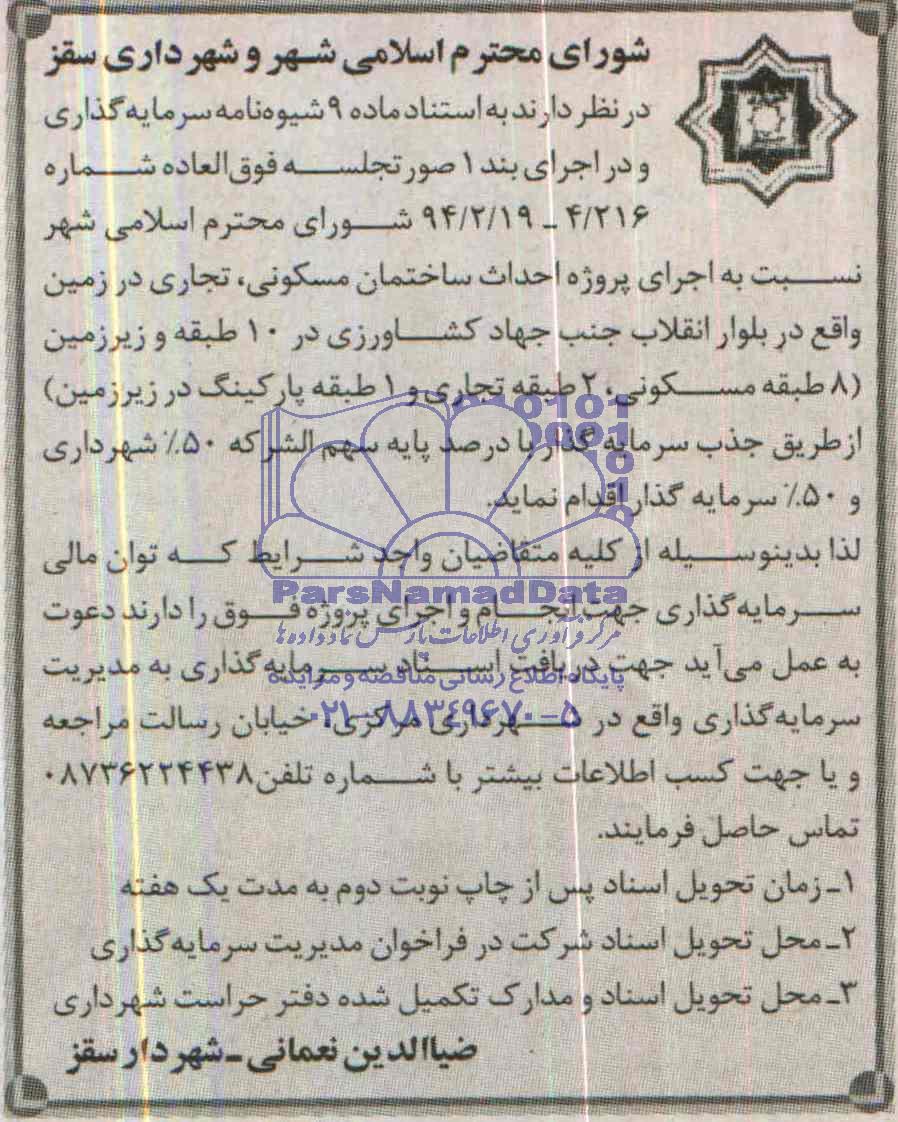 شورای محترم اسلامی شهر و شهرداری سقز
در نظر دارند به استناد ماده ۹ شیوه‌نامه سرمایه‌گذاری
و در اجرای بند ۱ صورتجلسه فوق‌العاده شماره
۴/۲۱۶ ـ ۹۴/۲/۱۹ شورای محترم اسلامی شهر
نسبت به اجرای پروژه احداث ساختمان مسکونی، تجاری در زمین
واقع در بلوار انقلاب جنب جهاد کشاورزی در ۱۰ طبقه و زیرزمین
(۸ طبقه مسکونی، ۲ طبقه تجاری و ۱ طبقه پارکینگ در زیرزمین)
از طریق جذب سرمایه گذار با درصد پایه سهم الشرکه ۵۰٪ شهرداری
و ۵۰٪ سرمایه گذار اقدام نماید.
لذا بدینوسیله از کلیه متقاضیان واجد شرایط که توان مالی
سرمایه‌گذاری جهت انجام و اجرای پروژه فوق را دارند دعوت
به عمل می‌آید جهت دریافت اسناد سرمایه‌گذاری به مدیریت
سرمایه‌گذاری واقع در شهرداری مرکزی، خیابان رسالت مراجعه
و یا جهت کسب اطلاعات بیشتر با شماره تلفن ۰۸۷۳۶۲۲۴۴۳۸
تماس حاصل فرمایند.
۱ـ زمان تحویل اسناد پس از چاپ نوبت دوم به مدت یک هفته
۲ـ محل تحویل اسناد شرکت در فراخوان مدیریت سرمایه‌گذاری
۳ـ محل تحویل اسناد و مدارک تکمیل شده دفتر حراست شهرداری
ضیاالدین نعمانی ـ شهردار سقز
ParsNamadData
مرکز فرآوری اطلاعات پارس نماد داده‌ها
پایگاه اطلاع رسانی مناقصه و مزایده
۰۲۱-۸۸۳۴۹۶۷۰-۵